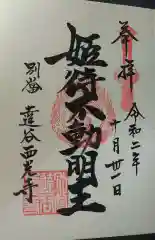 奉拝
令和二年
十月廿一日
姫待不動明王
別當
達谷西光寺